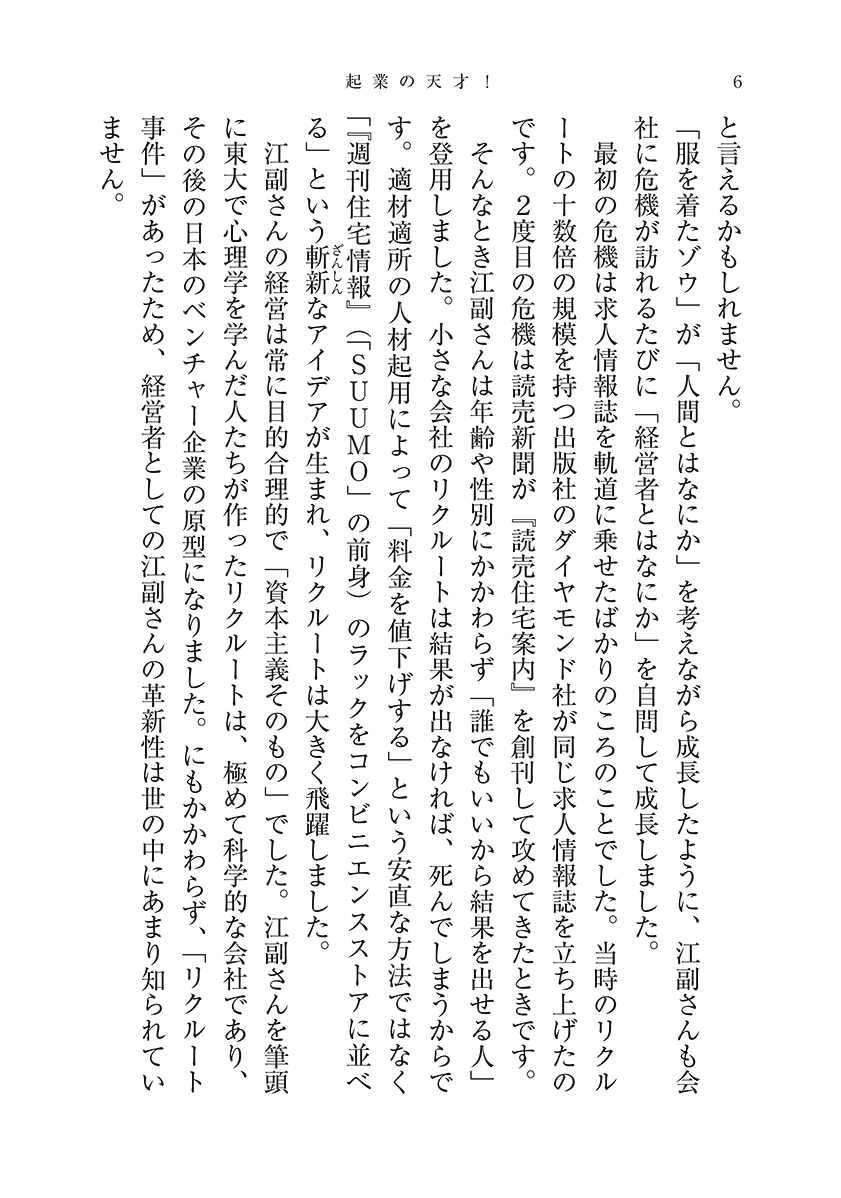 起業の天才！
6
と言えるかもしれません。
「服を着たゾウ」が「人間とはなにか」を考えながら成長したように、江副さんも会
社に危機が訪れるたびに「経営者とはなにか」を自問して成長しました。
最初の危機は求人情報誌を軌道に乗せたばかりのころのことでした。当時のリクル
ートの十数倍の規模を持つ出版社のダイヤモンド社が同じ求人情報誌を立ち上げたの
です。２度目の危機は読売新聞が『読売住宅案内』を創刊して攻めてきたときです。
そんなとき江副さんは年齢や性別にかかわらず「誰でもいいから結果を出せる人」
を登用しました。小さな会社のリクルートは結果が出なければ、死んでしまうからで
す。適材適所の人材起用によって「料金を値下げする」という安直な方法ではなく
「『週刊住宅情報』（「ＳＵＵＭＯ」の前身）のラックをコンビニエンスストアに並べ
る」という斬新ざんしんなアイデアが生まれ、リクルートは大きく飛躍しました。
江副さんの経営は常に目的合理的で「資本主義そのもの」でした。江副さんを筆頭
に東大で心理学を学んだ人たちが作ったリクルートは、極めて科学的な会社であり、
その後の日本のベンチャー企業の原型になりました。にもかかわらず、「リクルート
事件」があったため、経営者としての江副さんの革新性は世の中にあまり知られてい
ません。